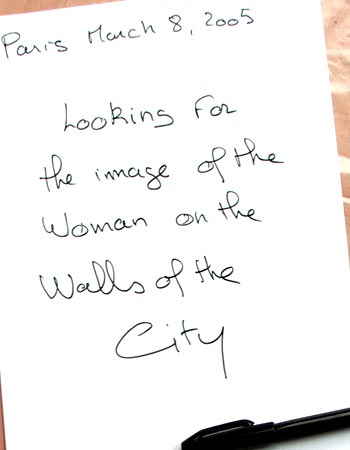 Paris March 8, 2005
Looking For
the image of the
Woman on the
Walls of the
City